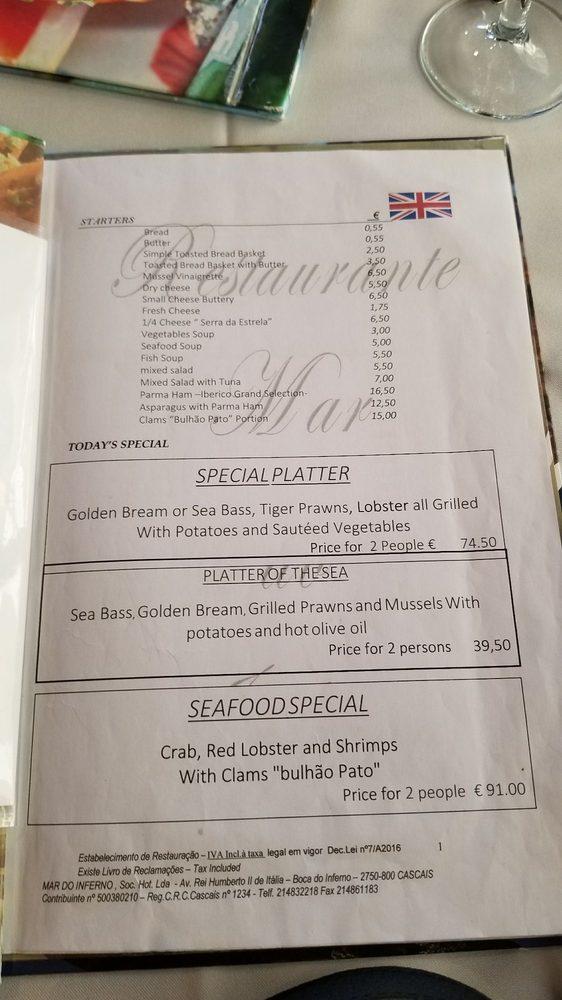 STARTERS €
Bread 0,55
Butter 0,55
Simple Toasted Bread Basket 2,50
Toasted Bread Basket with Butter 3,50
Mussel Vinaigrette 6,50
Dry cheese 5,50
Small Cheese Buttery 6,50
Fresh Cheese 1,75
1/4 Cheese " Serra da Estrela" 6,50
Vegetables Soup 3,00
Seafood Soup 5,00
Fish Soup 5,50
mixed salad 5,50
Mixed Salad with Tuna 7,00
Parma Ham –Iberico Grand Selection- 16,50
Asparagus with Parma Ham 12,50
Clams "Bulhão Pato" Portion 15,00
Restaurante
Mar
TODAY'S SPECIAL
SPECIAL PLATTER
Golden Bream or Sea Bass, Tiger Prawns, Lobster all Grilled
With Potatoes and Sautéed Vegetables
Price for 2 People € 74.50
PLATTER OF THE SEA
Sea Bass, Golden Bream, Grilled Prawns and Mussels With
potatoes and hot olive oil
Price for 2 persons 39,50
SEAFOOD SPECIAL
Crab, Red Lobster and Shrimps
With Clams "bulhão Pato"
Price for 2 people € 91.00
Estabelecimento de Restauração – IVA Incl.à taxa legal em vigor Dec.Lei nº7/A2016 1
Existe Livro de Reclamações – Tax Included
MAR DO INFERNO , Soc. Hot. Lda - Av. Rei Humberto II de Itália – Boca do Inferno – 2750-800 CASCAIS
Contribuinte nº 500380210 – Reg.C.R.C.Cascais nº 1234 - Telf. 214832218 Fax 214861183